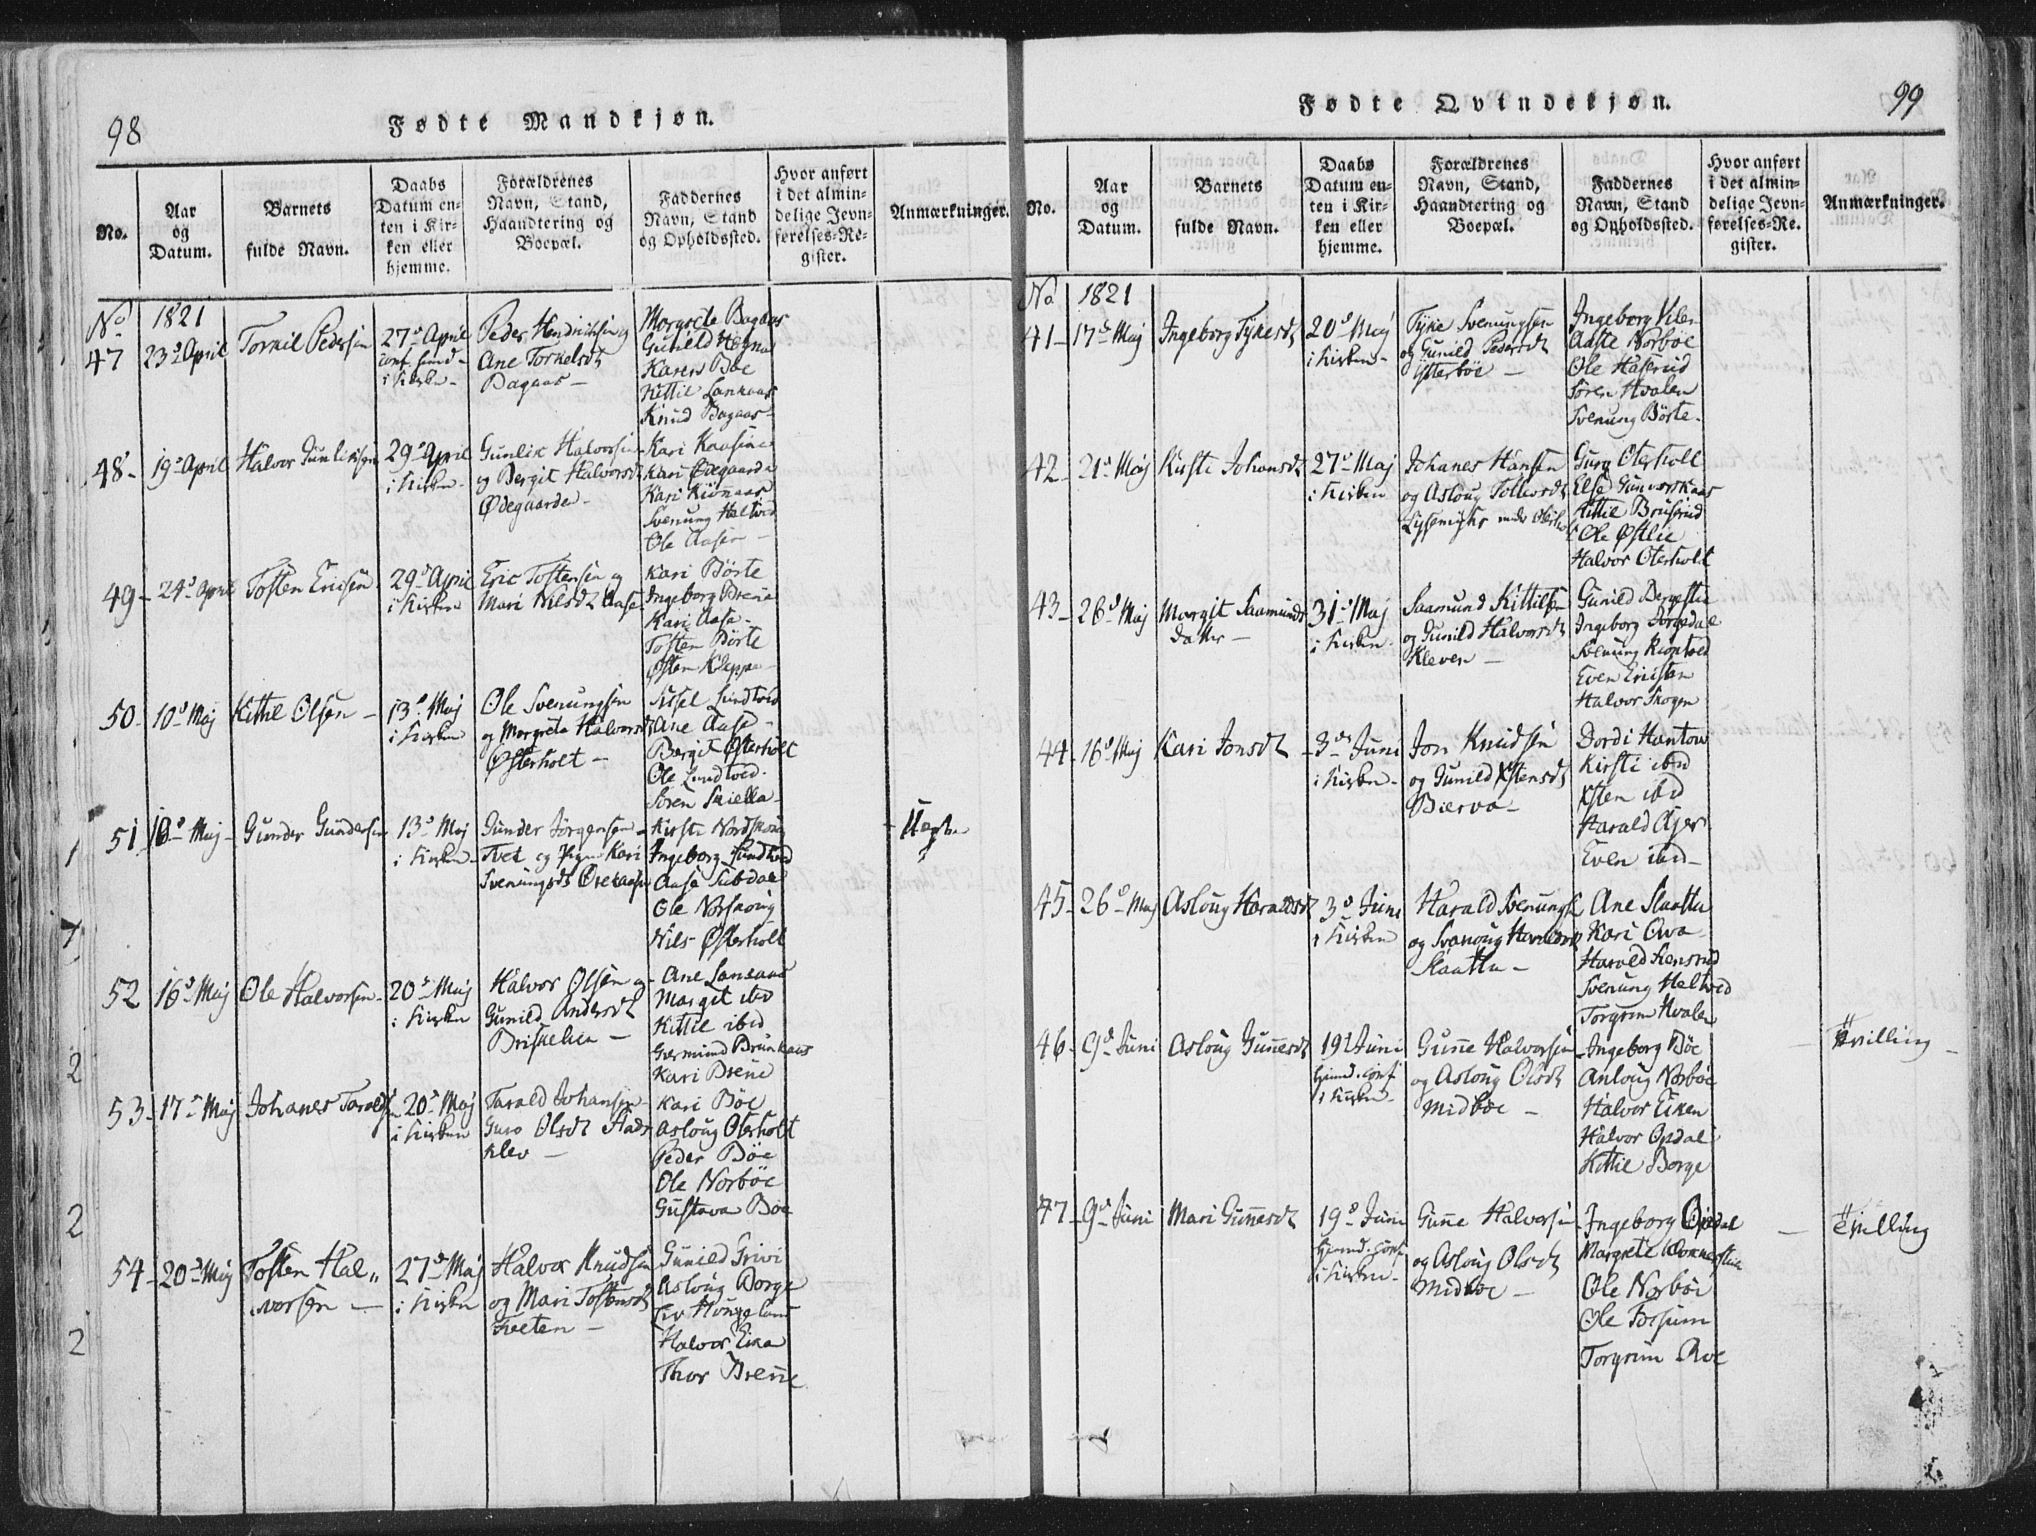 98
Fødte Mandkjøn.
No.
Aar
og
Datum.
Barnets
fulde Navn.
Daabs
Datum en-
ten i Kir-
ken eller
hjemme.
Forældrenes
Navn, Stand,
Haandtering og
Boepæl.
Faddernes
Navn, Stand
og Opholdssted.
Hvor anført
i det almin-
delige Jevn-
førelses-Re-
gister.
Anmærkninger.
No 1821
47
23d April
Torkil Pedersen
27d April
i Kirken
Peder Hendrichsen og
Ane Torkelsdt
Bagaas
Margrete Bagaas
Gunild Hegna
Karen Boe
Kittil Lankaas
Knud Bagaas
48
19d April
Halvor Gunlicksen
29d April
i Kirken
Gunlik Halvorsen
og Bergit Halvorsdt
Ødegaarden
Kari Kaasine
Kari Ødegaarde
Kari
Svenung Heltvid
Ole Aasen
49
24d April
Tosten Ericsen
29d April
i Kirken
Eric Tostensen og
Mari Nilsdt Aase
Kari Børte
Ingeborg Brene
Kari Aase
Tosten Børte
Østen Kleppe
50
10d Maj
Kittil Olsen
13d Maj
i Kirken
Ole Svenungsen
og Margrete Halvorsdt
Østerholt
Sissel Lundtved
Ane Aase
Bergit Østerholt
Ole Lundtved
Søren Skiella
51
10d Maj
Gunder Gundersen
13d Maj
i Kirken
Gunder Jørgensen
Tvet og Pigen Kari
Svenungsdt
Kirsti Nordskoug
Ingeborg Lundtved
Aase Lisbdal
Ole Norskoug
Nils Østerholt
Uægte
52
16d Maj
Ole Halvorsen
20d Maj
i Kirken
Halvor Olsen og
Gunild Andersdt
Briskelien
Ane Lankaas
Margit ibid
Kittil ibid
Giermund Brunkaas
Kari Brene
53
17d Maj
Johanes Taraldsen
20d Maj
i Kirken
Tarald Johansen
Guro Olsdt Stads
klev
Kari Bøe
Asloug Oterholt
Peder Bøe
Ole Norbøe
Gustava Bøe
54
20d Maj
Tosten Hal,,
vorsen
27d Maj
i Kirken
Halvor Knudsen
og Mari Tostensdt
Tveten
Gunild Grivi
Asloug Borge
Liv Hougeland
Halvor Eika
Thor Brene
Fødte Qvindekjøn.
99
No.
Aar
og
Datum.
Barnets
fulde Navn.
Daabs
Datum en-
ten i Kir-
ken eller
hjemme.
Forældrenes
Navn, Stand,
Haandtering og
Boepæl.
Faddernes
Navn, Stand
og Opholdssted.
Hvor anført
i det almin-
delige Jevn-
førelses-Re-
gister.
Anmærkninger.
No 1821
41
17d Maj
Ingeborg Tykesdt
20d Maj
i Kirken
Tyke Svenungsen
og Gunild Pedersdt
Ytterbøe
Ingeborg Vlen
Aaste Norbøe
Ole Haserud
Søren Hvalen
Svenung Børte
42
21d Maj
Kirsti Johansdt
27d Maj
i Kirken
Johanes Hansen
og Asloug Tollevsdt
Guro Oterholt
Else Gunvorskaas
Kittil Bruserud
Ole Østlie
Halvor Oterholt
43
26d Maj
Margit Saamunds
datter
31d Maj
i Kirken
Saamund Kittilsen
og Gunild Halvorsdt
Kleven
Gunild Bergstie
Ingeborg Jorgedal
Svenung
Even Ericsen
Halvor Skogen
44
16d Maj
Kari Jonsdt
3d Juni
i Kirken
Jon Knudsen
og Gunild Østensdt
Bierva
Dordi Hantow
Kirsti ibid
Østen ibid
Harald Ajer
Even ibid
45
26d Maj
Asloug Haraldsdt
3d Juni
i Kirken
Harald Svenungs
og Svanoug Havaldsdt
Slaatta
Ane Slaatta
Kari Ova
Harald Lensrud
Svenung Heltved
Torgrim Hvalen
46
9d Juni
Asloug Gunnesdt
19d Juni
hiemd. conf
i Kirken
Gunne Halvorsen
og Asloug Olsdt
Midbøe
Ingeborg Bøe
Anloug Norbøe
Halvor Eiken
Halvor Opdal
Kittil Borge
tvilling
47
9d Juni
Mari Gunnesdt
19d Juni
hiemd. conf
i Kirken
Gunne Halvorsen
og Asloug Olsdt
Midbøe
Ingeborg Opdal
Margrete
Ole Norbøe
Ole Forsum
Torgrim Roe
tvilling